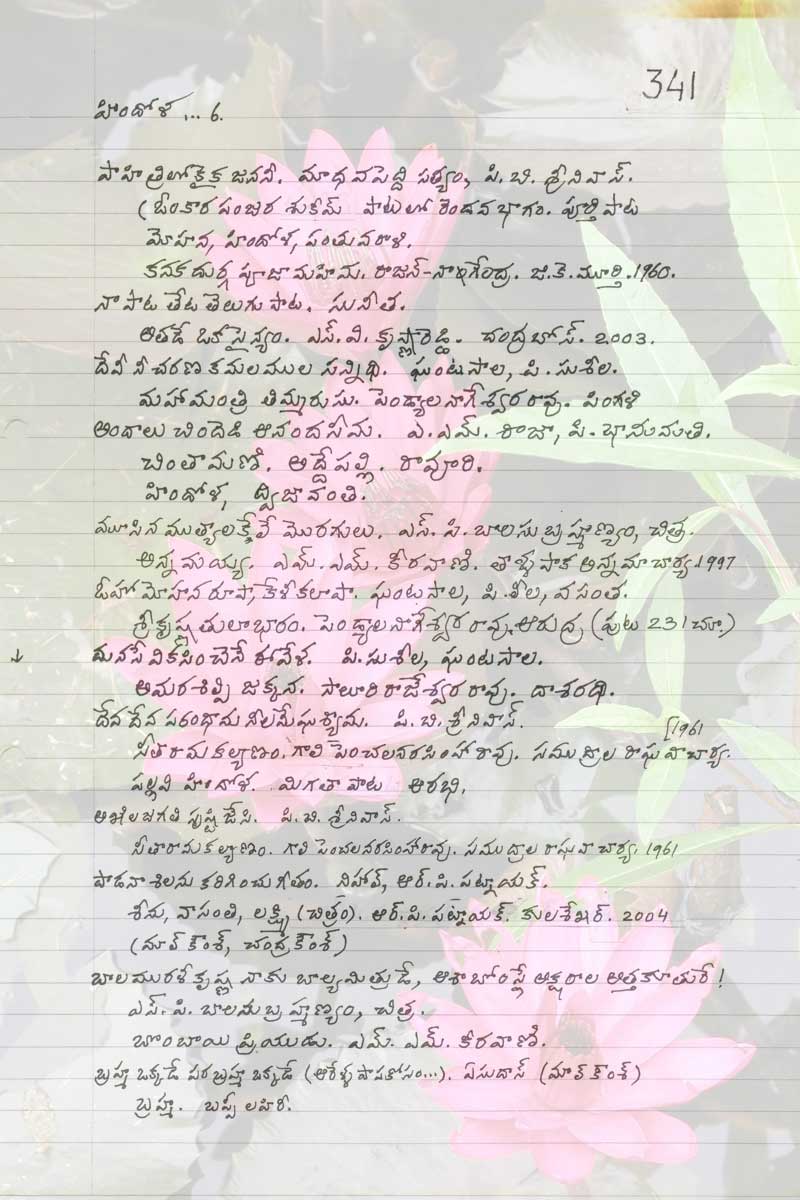 341
హిందోళ ... 6.
పాహి త్రిలోకైక జననీ. మాధవపెద్ది సత్యం, పి. బి. శ్రీనివాస్.
(ఓంకార పంజర శుకీమ్ పాటలో రెండవ భాగం. పూర్తి పాట
మోహన, హిందోళ, పంతువరాళి.
కనకదుర్గ పూజా మహిమ. రాజన్-నాగేంద్ర. జి. కె. మూర్తి. 1960.
నా పాట తేట తెలుగు పాట. సునీత.
అతడే ఒక సైన్యం. ఎస్. వి. కృష్ణారెడ్డి. చంద్రబోస్. 2003.
దేవీ నీ చరణ కమలముల సన్నిధి. ఘంటసాల, పి. సుశీల.
మహామంత్రి తిమ్మరుసు. పెండ్యాల నాగేశ్వరరావు. పింగళి
అందాలు చిందెడి ఆనందసీమ. ఎ. ఎమ్. రాజా, పి. భానుమతి.
చింతామణి. అద్దేపల్లి. రావూరి.
హిందోళ, ద్విజావంతి.
మూసిన ముత్యాలకేలే మొరగులు. ఎస్. పి. బాలసుబ్రహ్మణ్యం, చిత్ర.
అన్నమయ్య. ఎమ్. ఎమ్. కీరవాణి. తాళ్ళపాక అన్నమాచార్య. 1997
ఓహో మోహన రూపా, కేళీకలాపా. ఘంటసాల, పి. లీల, వసంత.
శ్రీకృష్ణ తులాభారం. పెండ్యాల నాగేశ్వరరావు. ఆరుద్ర (పుట 231 చూ.)
↓ మనసే వికసించెనే ఈవేళ. పి. సుశీల, ఘంటసాల.
అమరశిల్పి జక్కన. సాలూరి రాజేశ్వరరావు. దాశరథి.
దేవ దేవ పరంధామ నీలమేఘశ్యామ. పి. బి. శ్రీనివాస్.
సీతారామ కల్యాణం. గాలి పెంచలనరసింహారావు. సముద్రాల రాఘవాచార్య. [1961
పల్లవి హిందోళ. మిగతా పాట ఆరభి.
అఖిల జగతి సృష్టి జేసి. పి. బి. శ్రీనివాస్.
సీతారామ కల్యాణం. గాలి పెంచలనరసింహారావు. సముద్రాల రాఘవాచార్య 1961
పాడనా శిలను కరిగించు గీతం. నిహాల్, ఆర్. పి. పట్నాయక్.
శీను, వాసంతి, లక్ష్మి (చిత్రం). ఆర్. పి. పట్నాయక్. కులశేఖర్. 2004
(మాల్ కౌంశ్, చంద్రకౌంశ్)
బాలమురళీకృష్ణ నాకు బాల్యమిత్రుడే, ఆశాభోంస్లే అక్షరాల అత్తకూతురే!
ఎస్. పి. బాలసుబ్రహ్మణ్యం, చిత్ర.
బొంబాయి ప్రియుడు. ఎమ్. ఎమ్. కీరవాణి.
బ్రహ్మ ఒక్కడే పరబ్రహ్మ ఒక్కడే (ఆరేళ్ళ పాపకోసం...). ఏసుదాస్ (మాల్ కౌంశ్)
బ్రహ్మ. బప్పీ లహిరి.